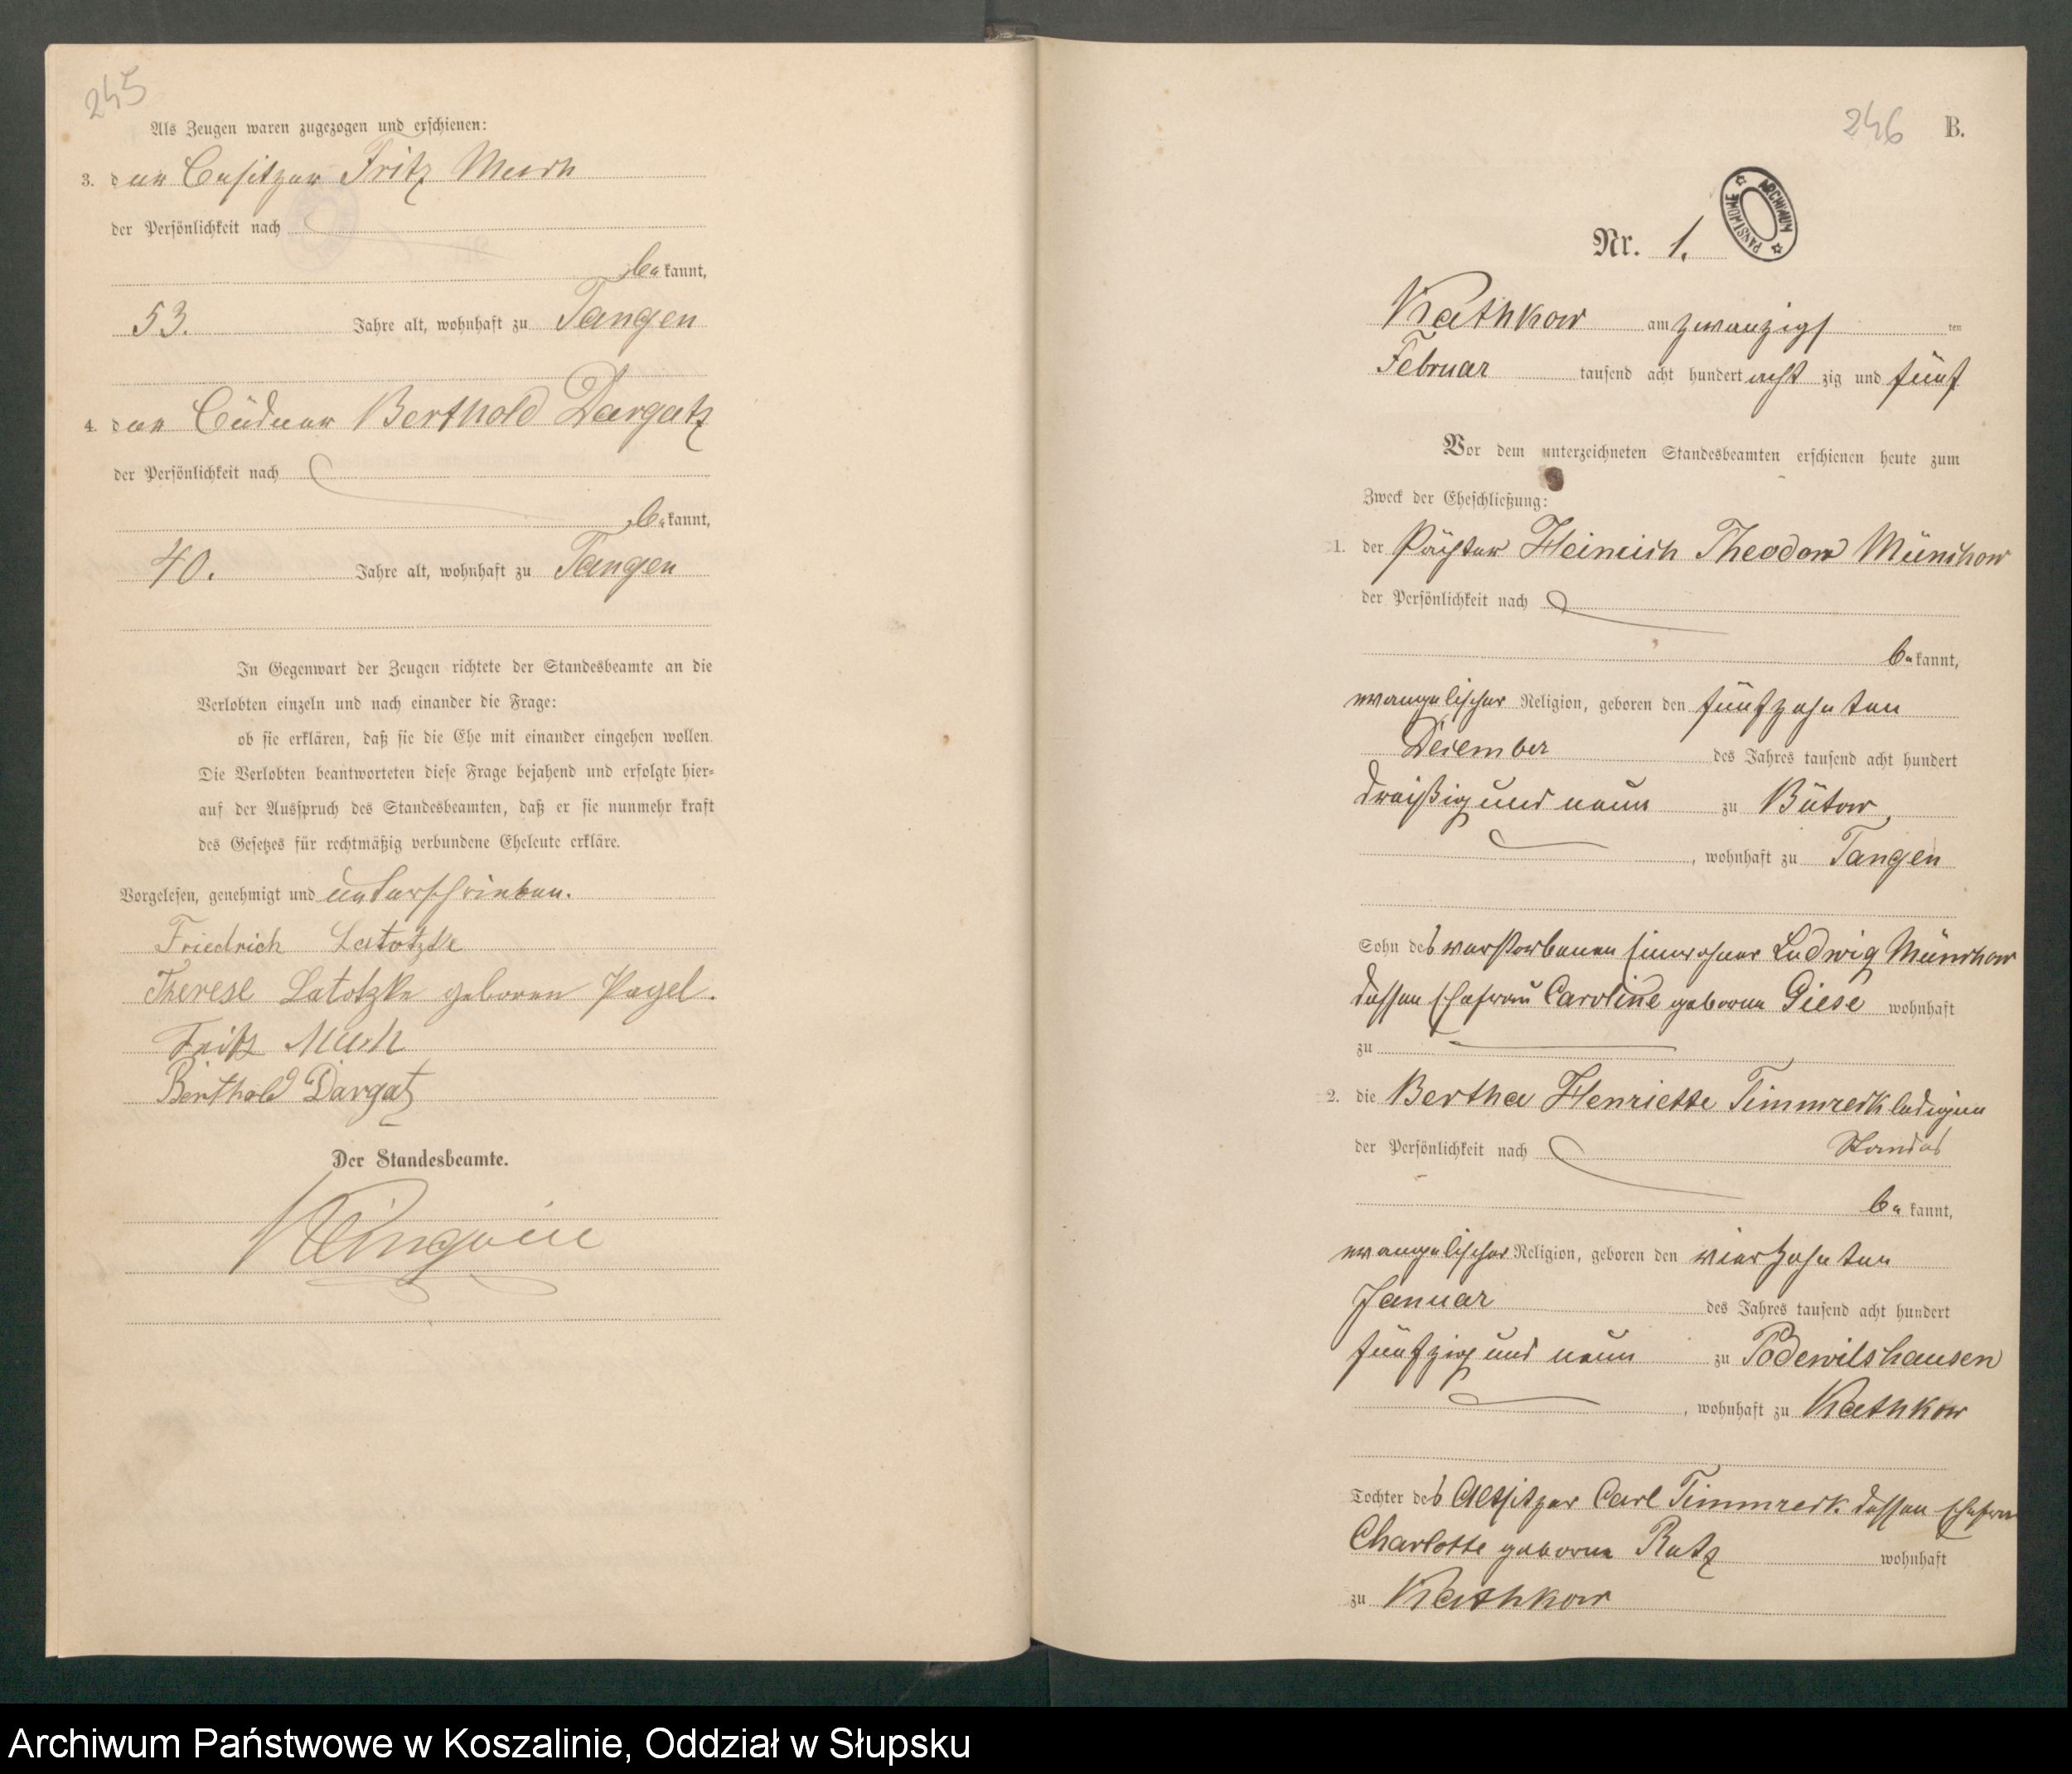 245
Als Zeugen waren zugezogen und erschienen:
3. der Besitzer Fritz Much
der Persönlichkeit nach
bekannt,
53. Jahre alt, wohnhaft zu Tangen
4. der Büdner Berthold Dargatz
der Persönlichkeit nach
bekannt,
40. Jahre alt, wohnhaft zu Tangen
In Gegenwart der Zeugen richtete der Standesbeamte an die
Verlobten einzeln und nach einander die Frage:
ob sie erklären, daß sie die Ehe mit einander eingehen wollen.
Die Verlobten beantworteten diese Frage bejahend und erfolgte hier=
auf der Ausspruch des Standesbeamten, daß er sie nunmehr kraft
des Gesetzes für rechtmäßig verbundene Eheleute erkläre.
Vorgelesen, genehmigt und unterschrieben.
Friedrich Latotzke
Therese Latotzke geboren Pagel.
Fritz Much
Berthold Dargatz
Der Standesbeamte.
246 B.
ARCHIWUM PAŃSTWOWE
Nr. 1.
Kathkow am zwanzigsten
Februar tausend acht hundert achtzig und fünf
Vor dem unterzeichneten Standesbeamten erschienen heute zum
Zweck der Eheschließung:
1. der Pächter Heinrich Theodor Münchow
der Persönlichkeit nach
bekannt,
evangelischer Religion, geboren den fünfzehnten
Dezember des Jahres tausend acht hundert
dreißig und neun zu Bütow,
, wohnhaft zu Tangen
Sohn des verstorbenen Einwohner Ludwig Münchow
dessen Ehefrau Caroline geborne Giese wohnhaft
zu
2. die Bertha Henriette Timmreck ledigen
der Persönlichkeit nach Standes
bekannt,
evangelischer Religion, geboren den vierzehnten
Januar des Jahres tausend acht hundert
fünfzig und neun zu Podewilshausen
, wohnhaft zu Kathkow
Tochter des Altsitzer Carl Timmreck dessen Ehefrau
Charlotte geborne Ratz wohnhaft
zu Kathkow
Archiwum Państwowe w Koszalinie, Oddział w Słupsku